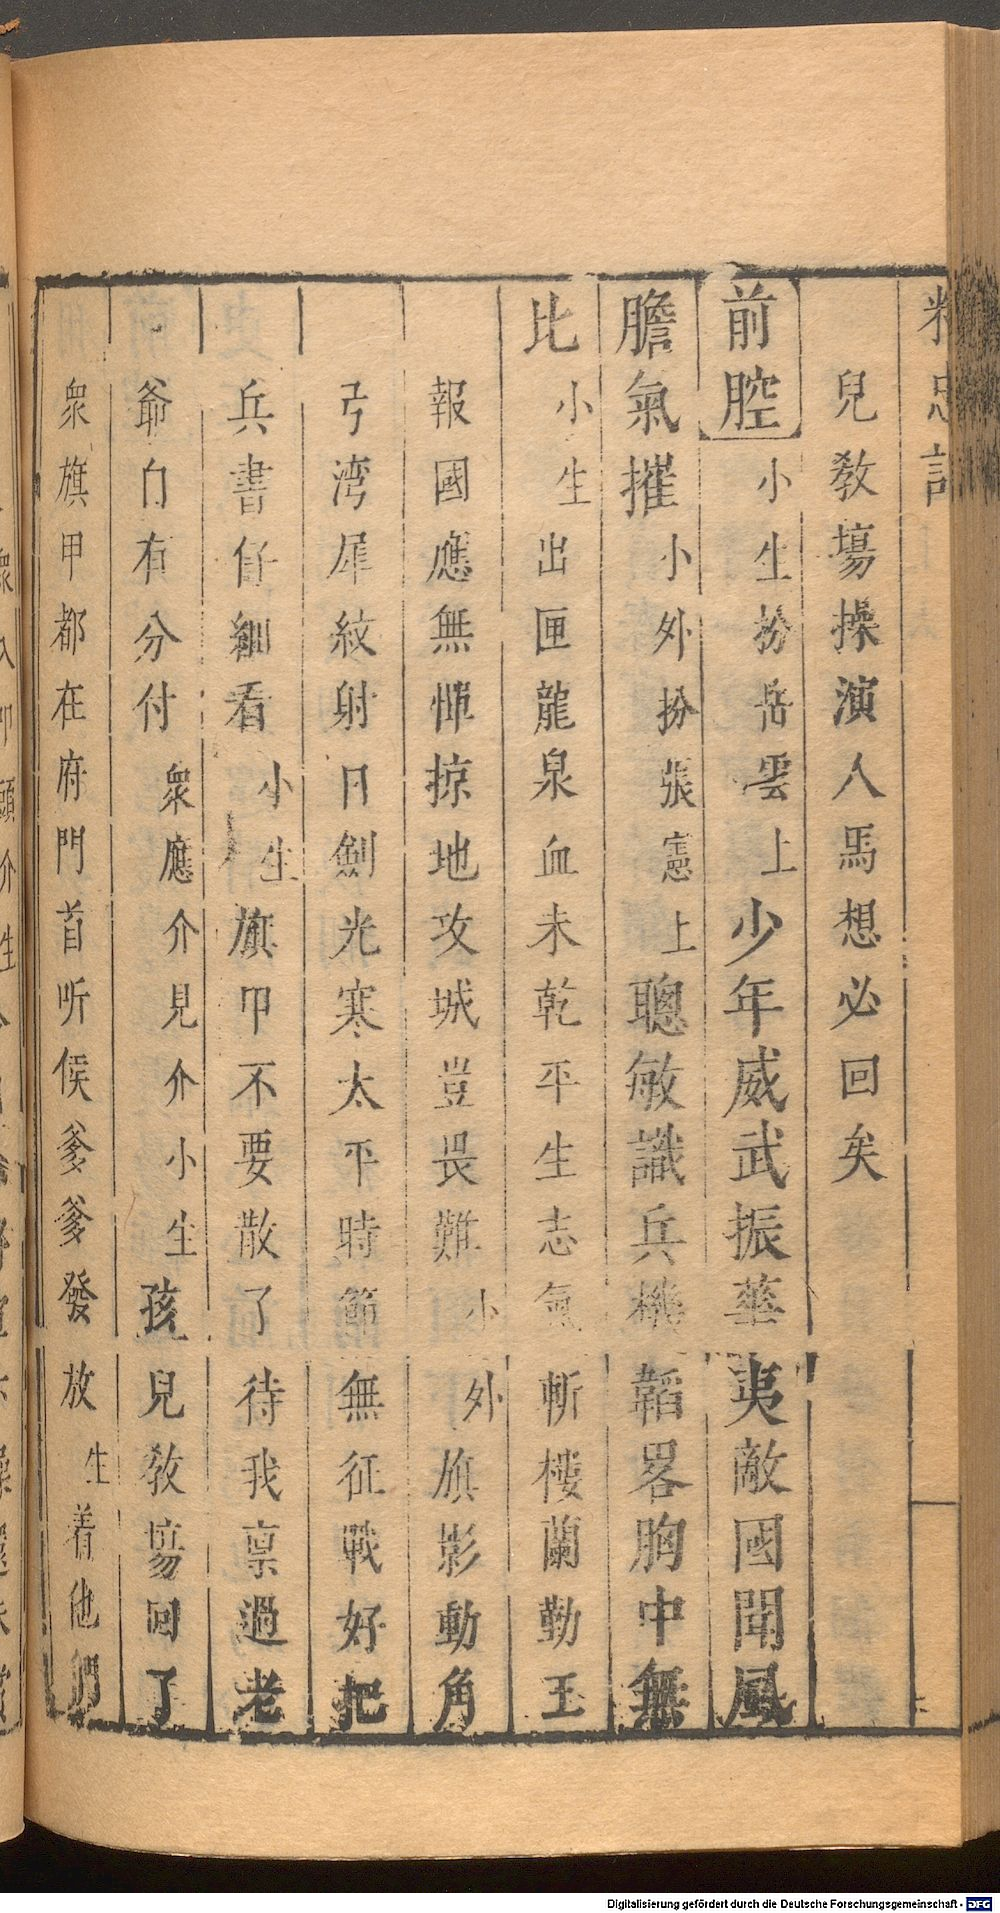 兒敎塲操演人馬想必回矣
前腔小生扮岳雲上少年威武振華夷敵國聞風
膽氣摧小外扮張憲上聰敏識兵機韜畧胸中無
比小生出匣龍泉血未乾平生志氣斬樓蘭勤王
報國應無憚掠地攻城豈畏難小外旗影動角
弓湾犀紋射日劍光寒太平時節無征戰好把
兵書仔細看小生旗甲不要散了待我禀過老
爺自有分付衆應介見介小生孩兒敎塲回了
衆旗甲都在府門首听候爹爹發放生着他們
Digitalisierung gefördert durch die Deutsche Forschungsgemeinschaft - DFG